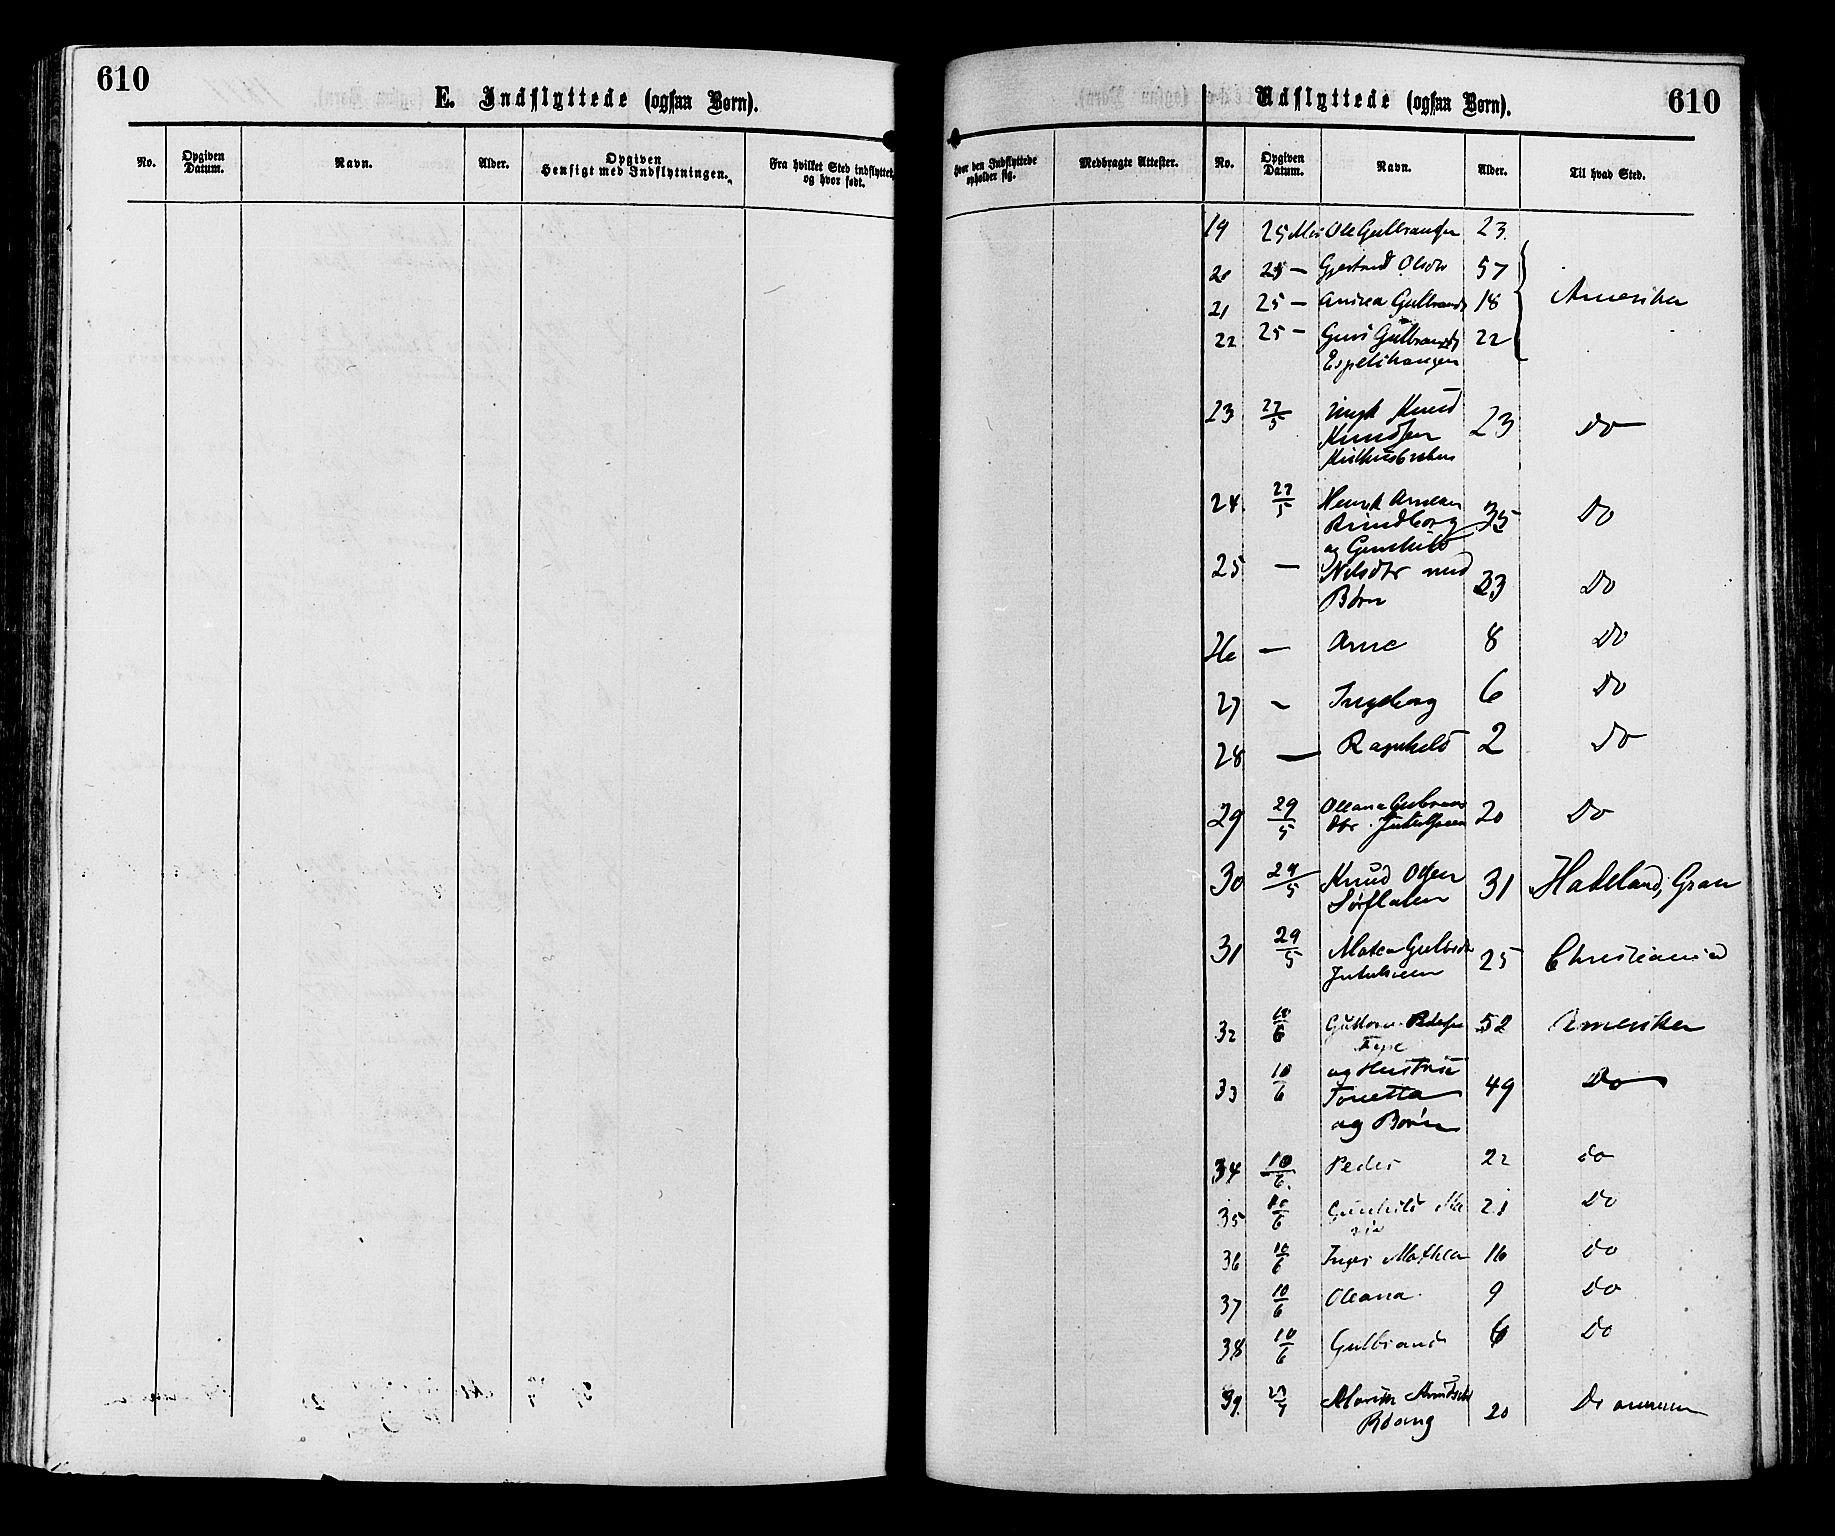 610
E. Indflyttede (ogsaa Børn).
No.
Opgiven Datum.
Navn.
Alder.
Opgiven Hensigt med Indflytningen.
Fra hvilket Sted indflyttet, og hvor født.
Hvor den Indflyttede opholder sig.
Medbragte Attester.
Udflyttede (ogsaa Børn).
610
No.
Opgiven Datum.
Navn.
Alder.
Til hvad Sted.
19 25 Mai Ole Gulbrandsen 23
20 25 — Gjertrud Olsdtr 57
21 25 — Andrea Gulbrands 18 Amerika
22 25 — Guri Gulbrands 22
Espelihaugen
23 27/5 Ungk Knud
Knudsen 23 Do
24 27/5 Henrik
35 Do
og Gunhild
25 — Nilsdtr med
Børn 23 Do
26 — Arne 8 Do
27 — Ingeborg 6 Do
28 — Ragnhild 2 Do
29 29/5 Oleana Gulbrands
dtr 20 Do
30 29/5 Knud Olsen 31 Hadeland, Gran
Sørflaten
31 29/5 Mathea Gulbrdtr 25 Christiania
32 10/6 Guttorm 52 Amerika
og Hustru
33 10/6 Tonetta 49 Do
og Børn
34 10/6 Peder 22 do
35 10/6 Gunhild Ma 21 Do
ria
36 10/6 Inger Mathea 16 do
37 10/6 Oleana 9 Do
38 10/6 Gulbrand 6 Do
39. Knudsdtr
20